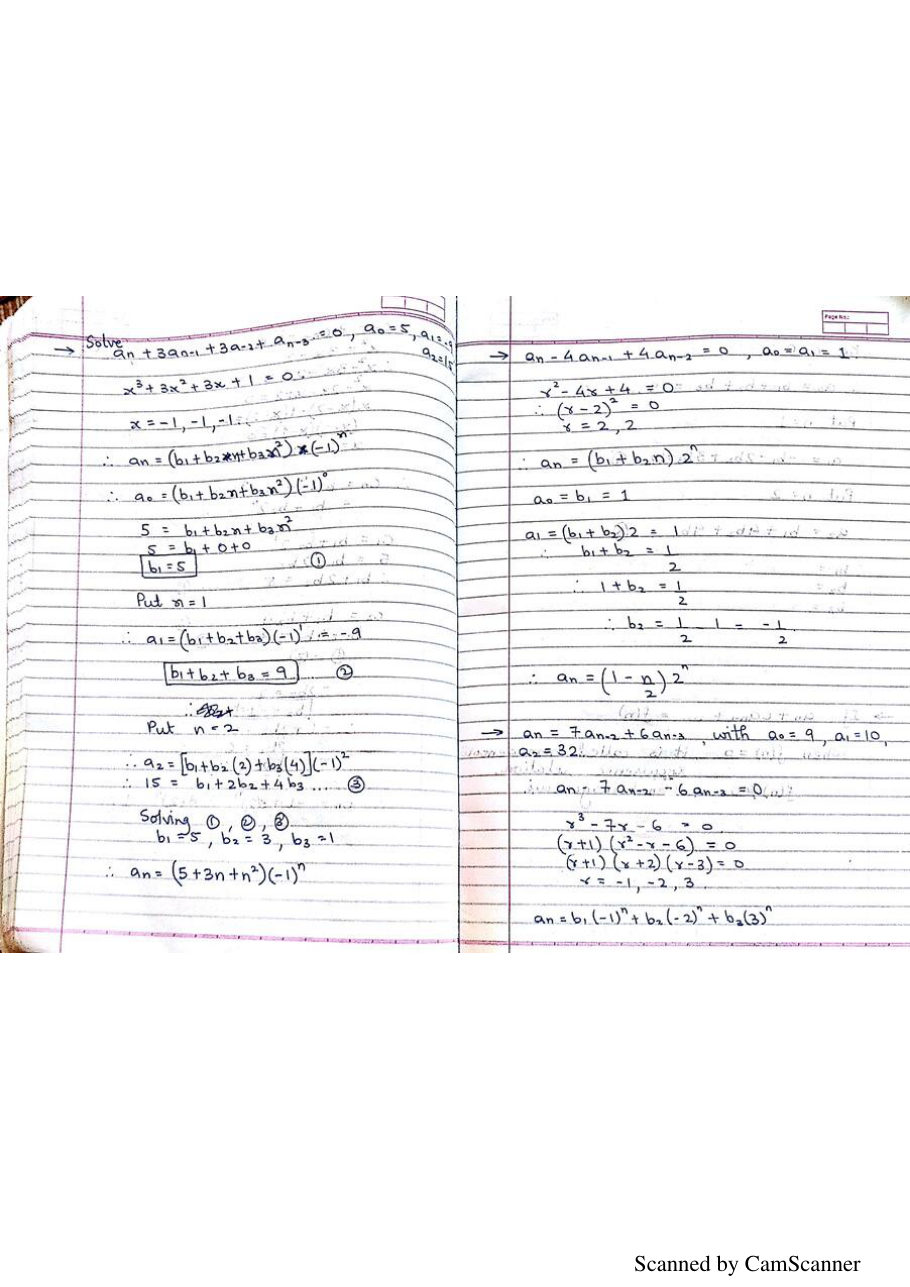 → Solve
an + 3an-1 + 3a-2 + an-3 = 0, a0 = 5, a1 = -9
a2 = 15
x³ + 3x² + 3x + 1 = 0
x = -1, -1, -1
∴ an = (b1 + b2*n + b3n²) * (-1)ⁿ
∴ a0 = (b1 + b2n + b3n²) (-1)⁰
5 = b1 + b2n + b3n²
5 = b1 + 0 + 0
b1 = 5 ①
Put n = 1
∴ a1 = (b1 + b2 + b3) (-1)¹ = -9
b1 + b2 + b3 = 9 ... ②
Put n = 2
∴ a2 = [b1 + b2 (2) + b3 (4)] (-1)²
∴ 15 = b1 + 2b2 + 4b3 .... ③
Solving ①, ②, ③
b1 = 5, b2 = 3, b3 = 1
∴ an = (5 + 3n + n²) (-1)ⁿ
Page No.:
→ an - 4an-1 + 4an-2 = 0, a0 = a1 = 1
r² - 4r + 4 = 0
∴ (r - 2)² = 0
r = 2, 2
∴ an = (b1 + b2n) 2ⁿ
a0 = b1 = 1
a1 = (b1 + b2) 2 = 1
∴ b1 + b2 = 1/2
∴ 1 + b2 = 1/2
∴ b2 = 1/2 - 1 = -1/2
∴ an = (1 - n/2) 2ⁿ
→ an = 7an-2 + 6an-3, with a0 = 9, a1 = 10,
a2 = 32.
an - 7an-2 - 6an-3 = 0
r³ - 7r - 6 = 0
(r+1) (r² - r - 6) = 0
(r+1) (r+2) (r-3) = 0
r = -1, -2, 3
an = b1 (-1)ⁿ + b2 (-2)ⁿ + b3 (3)ⁿ
Scanned by CamScanner